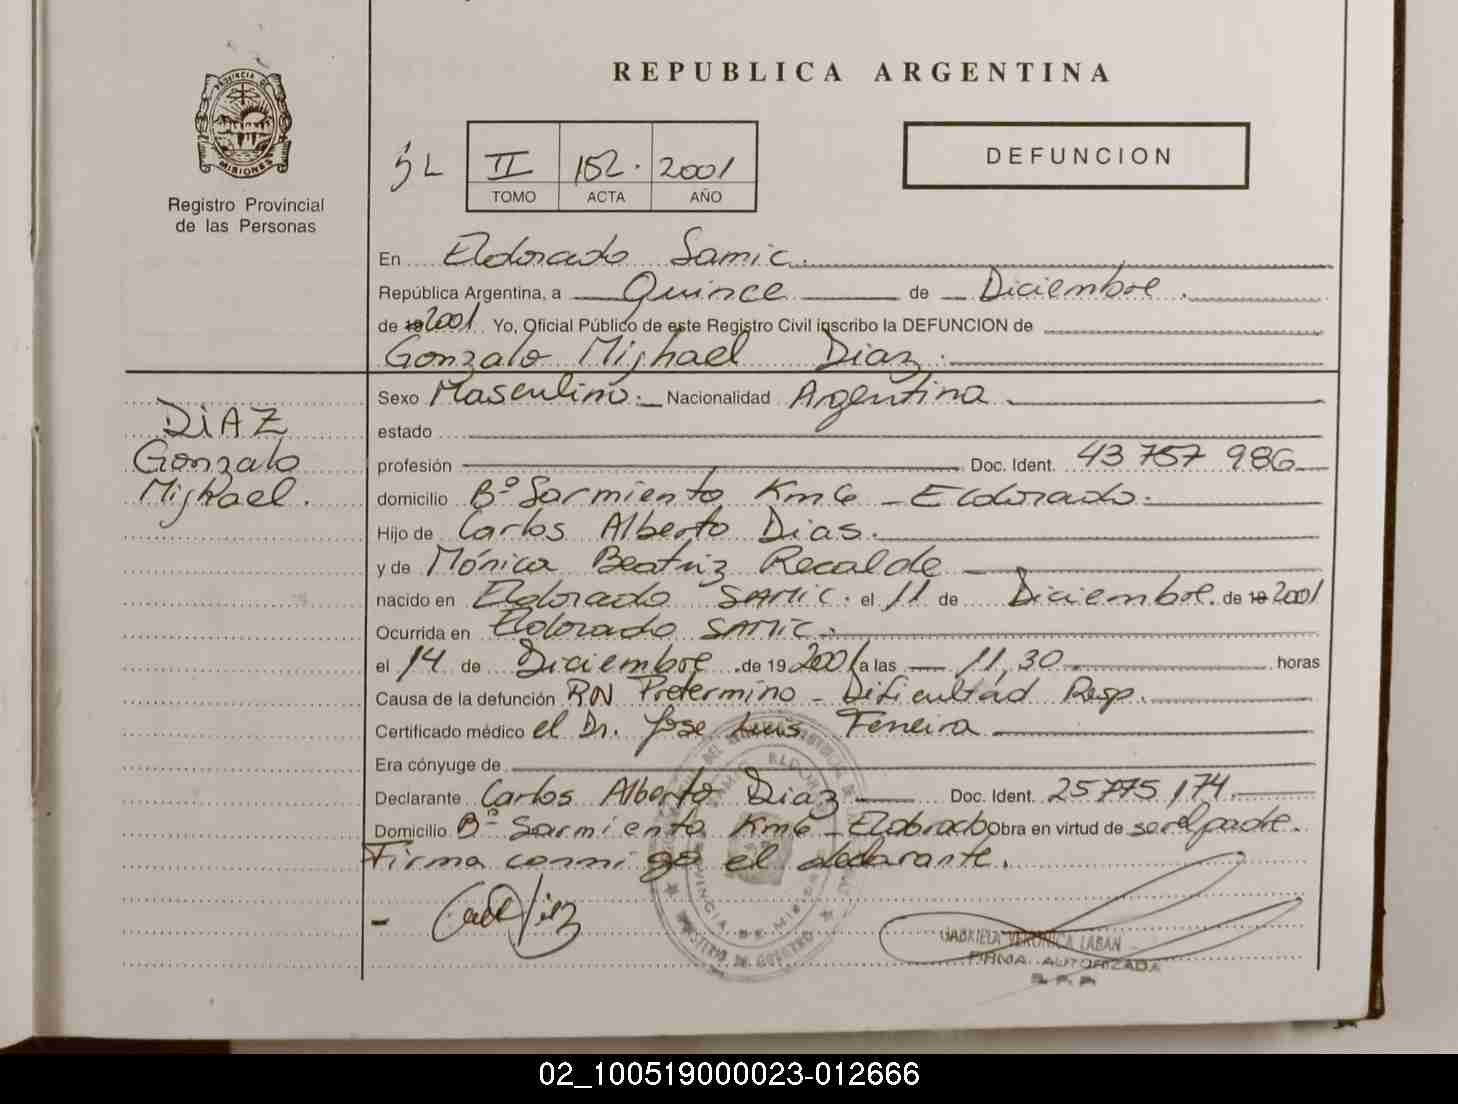 PROVINCIA DE
MISIONES
Registro Provincial
de las Personas
REPUBLICA ARGENTINA
II 152. 2001
TOMO ACTA AÑO
DEFUNCION
En Eldorado Samic.
República Argentina, a Quince de Diciembre.
de 19 2001 Yo, Oficial Público de este Registro Civil inscribo la DEFUNCION de
Gonzalo Mijhael Diaz.
DIAZ
Gonzalo
Mijhael.
Sexo Masculino. Nacionalidad Argentina
estado
profesión Doc. Ident. 43 757 986
domicilio Bº Sarmiento Km 6 - Eldorado.
Hijo de Carlos Alberto Dias.
y de Mónica Beatriz Recalde
nacido en Eldorado SAMIC. el 11 de Diciembre. de 19 2001
Ocurrida en Eldorado SAMIC.
el 14 de Diciembre .de 19 2001 a las 11,30 horas
Causa de la defunción RN Pretermino - Dificultad Resp.
Certificado médico el Dr. Jose Luis Ferreira
Era cónyuge de
Declarante Carlos Alberto Diaz Doc. Ident. 25 775 174
Domicilio Bº Sarmiento Km 6 - Eldorado obra en virtud de ser el padre.
Firma conmigo el declarante.
GABRIELA VERONICA LABAN
FIRMA AUTORIZADA
02_100519000023-012666